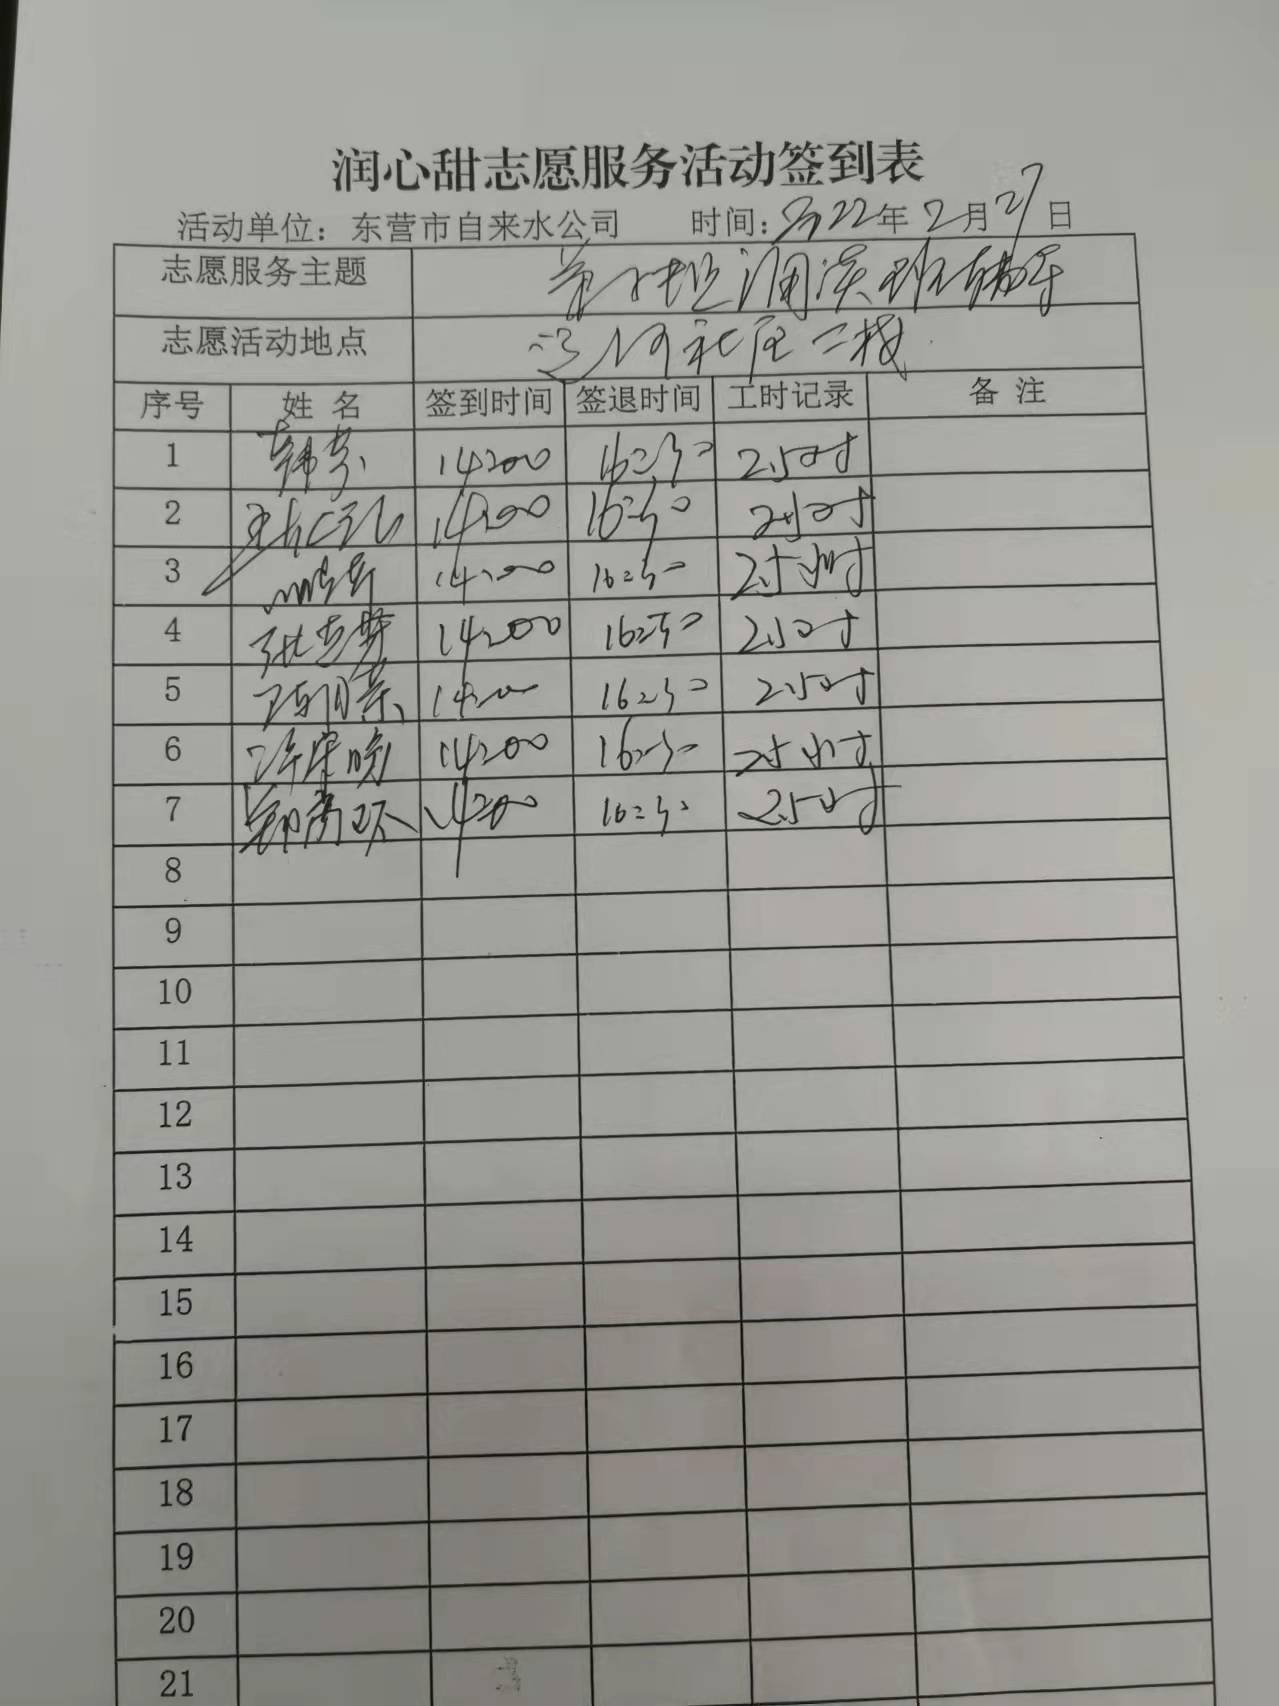 润心甜志愿服务活动签到表
活动单位：东营市自来水公司 时间：2022年2月27日
志愿服务主题 演班辅导
志愿活动地点 社区二楼
序号 姓名 签到时间 签退时间 工时记录 备注
1 韩芬 14:00 16:30 2.5小时
2 14:00 16:30 2.5小时
3 14:00 16:30 2.5小时
4 张志梦 14:00 16:30 2.5小时
5 14:00 16:30 2.5小时
6 许荣晓 14:00 16:30 2.5小时
7 14:00 16:30 2.5小时
8
9
10
11
12
13
14
15
16
17
18
19
20
21